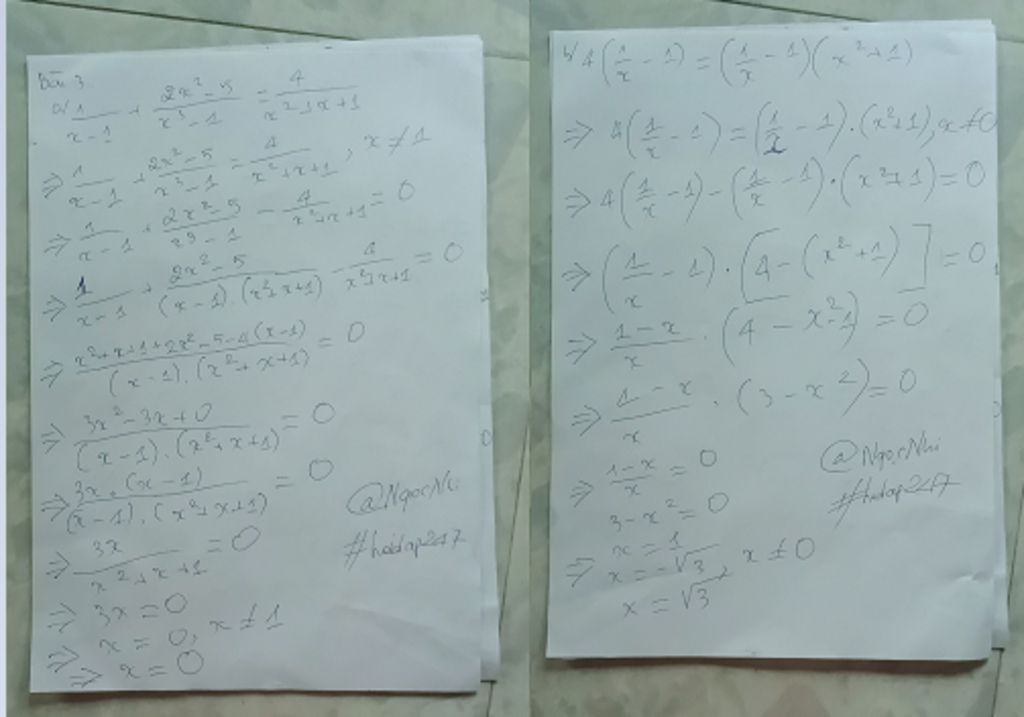 Bài 3
a/ 1/(x-1) + (2x²-5)/(x³-1) = 4/(x²+x+1)
=> 1/(x-1) + (2x²-5)/(x³-1) = 4/(x²+x+1), x ≠ 1
=> 1/(x-1) + (2x²-5)/(x³-1) - 4/(x²+x+1) = 0
=> 1/(x-1) + (2x²-5)/((x-1).(x²+x+1)) - 4/(x²+x+1) = 0
=> (x²+x+1+2x²-5-4(x-1))/((x-1).(x²+x+1)) = 0
=> (3x²-3x+0)/((x-1).(x²+x+1)) = 0
=> (3x.(x-1))/((x-1).(x²+x+1)) = 0
=> 3x/(x²+x+1) = 0
=> 3x = 0
=> x = 0, x ≠ 1
=> x = 0
@NgọcNhi
#hoidap247
b/ 4(1/x - 1) = (1/x - 1)(x²+1)
=> 4(1/x - 1) = (1/x - 1).(x²+1), x ≠ 0
=> 4(1/x - 1) - (1/x - 1).(x²+1) = 0
=> (1/x - 1).[4 - (x²+1)] = 0
=> (1-x)/x . (4 - x²-1) = 0
=> (1-x)/x . (3 - x²) = 0
=> (1-x)/x = 0
3 - x² = 0
x = 1
=> x = -√3, x ≠ 0
x = √3
@NgọcNhi
#hoidap247